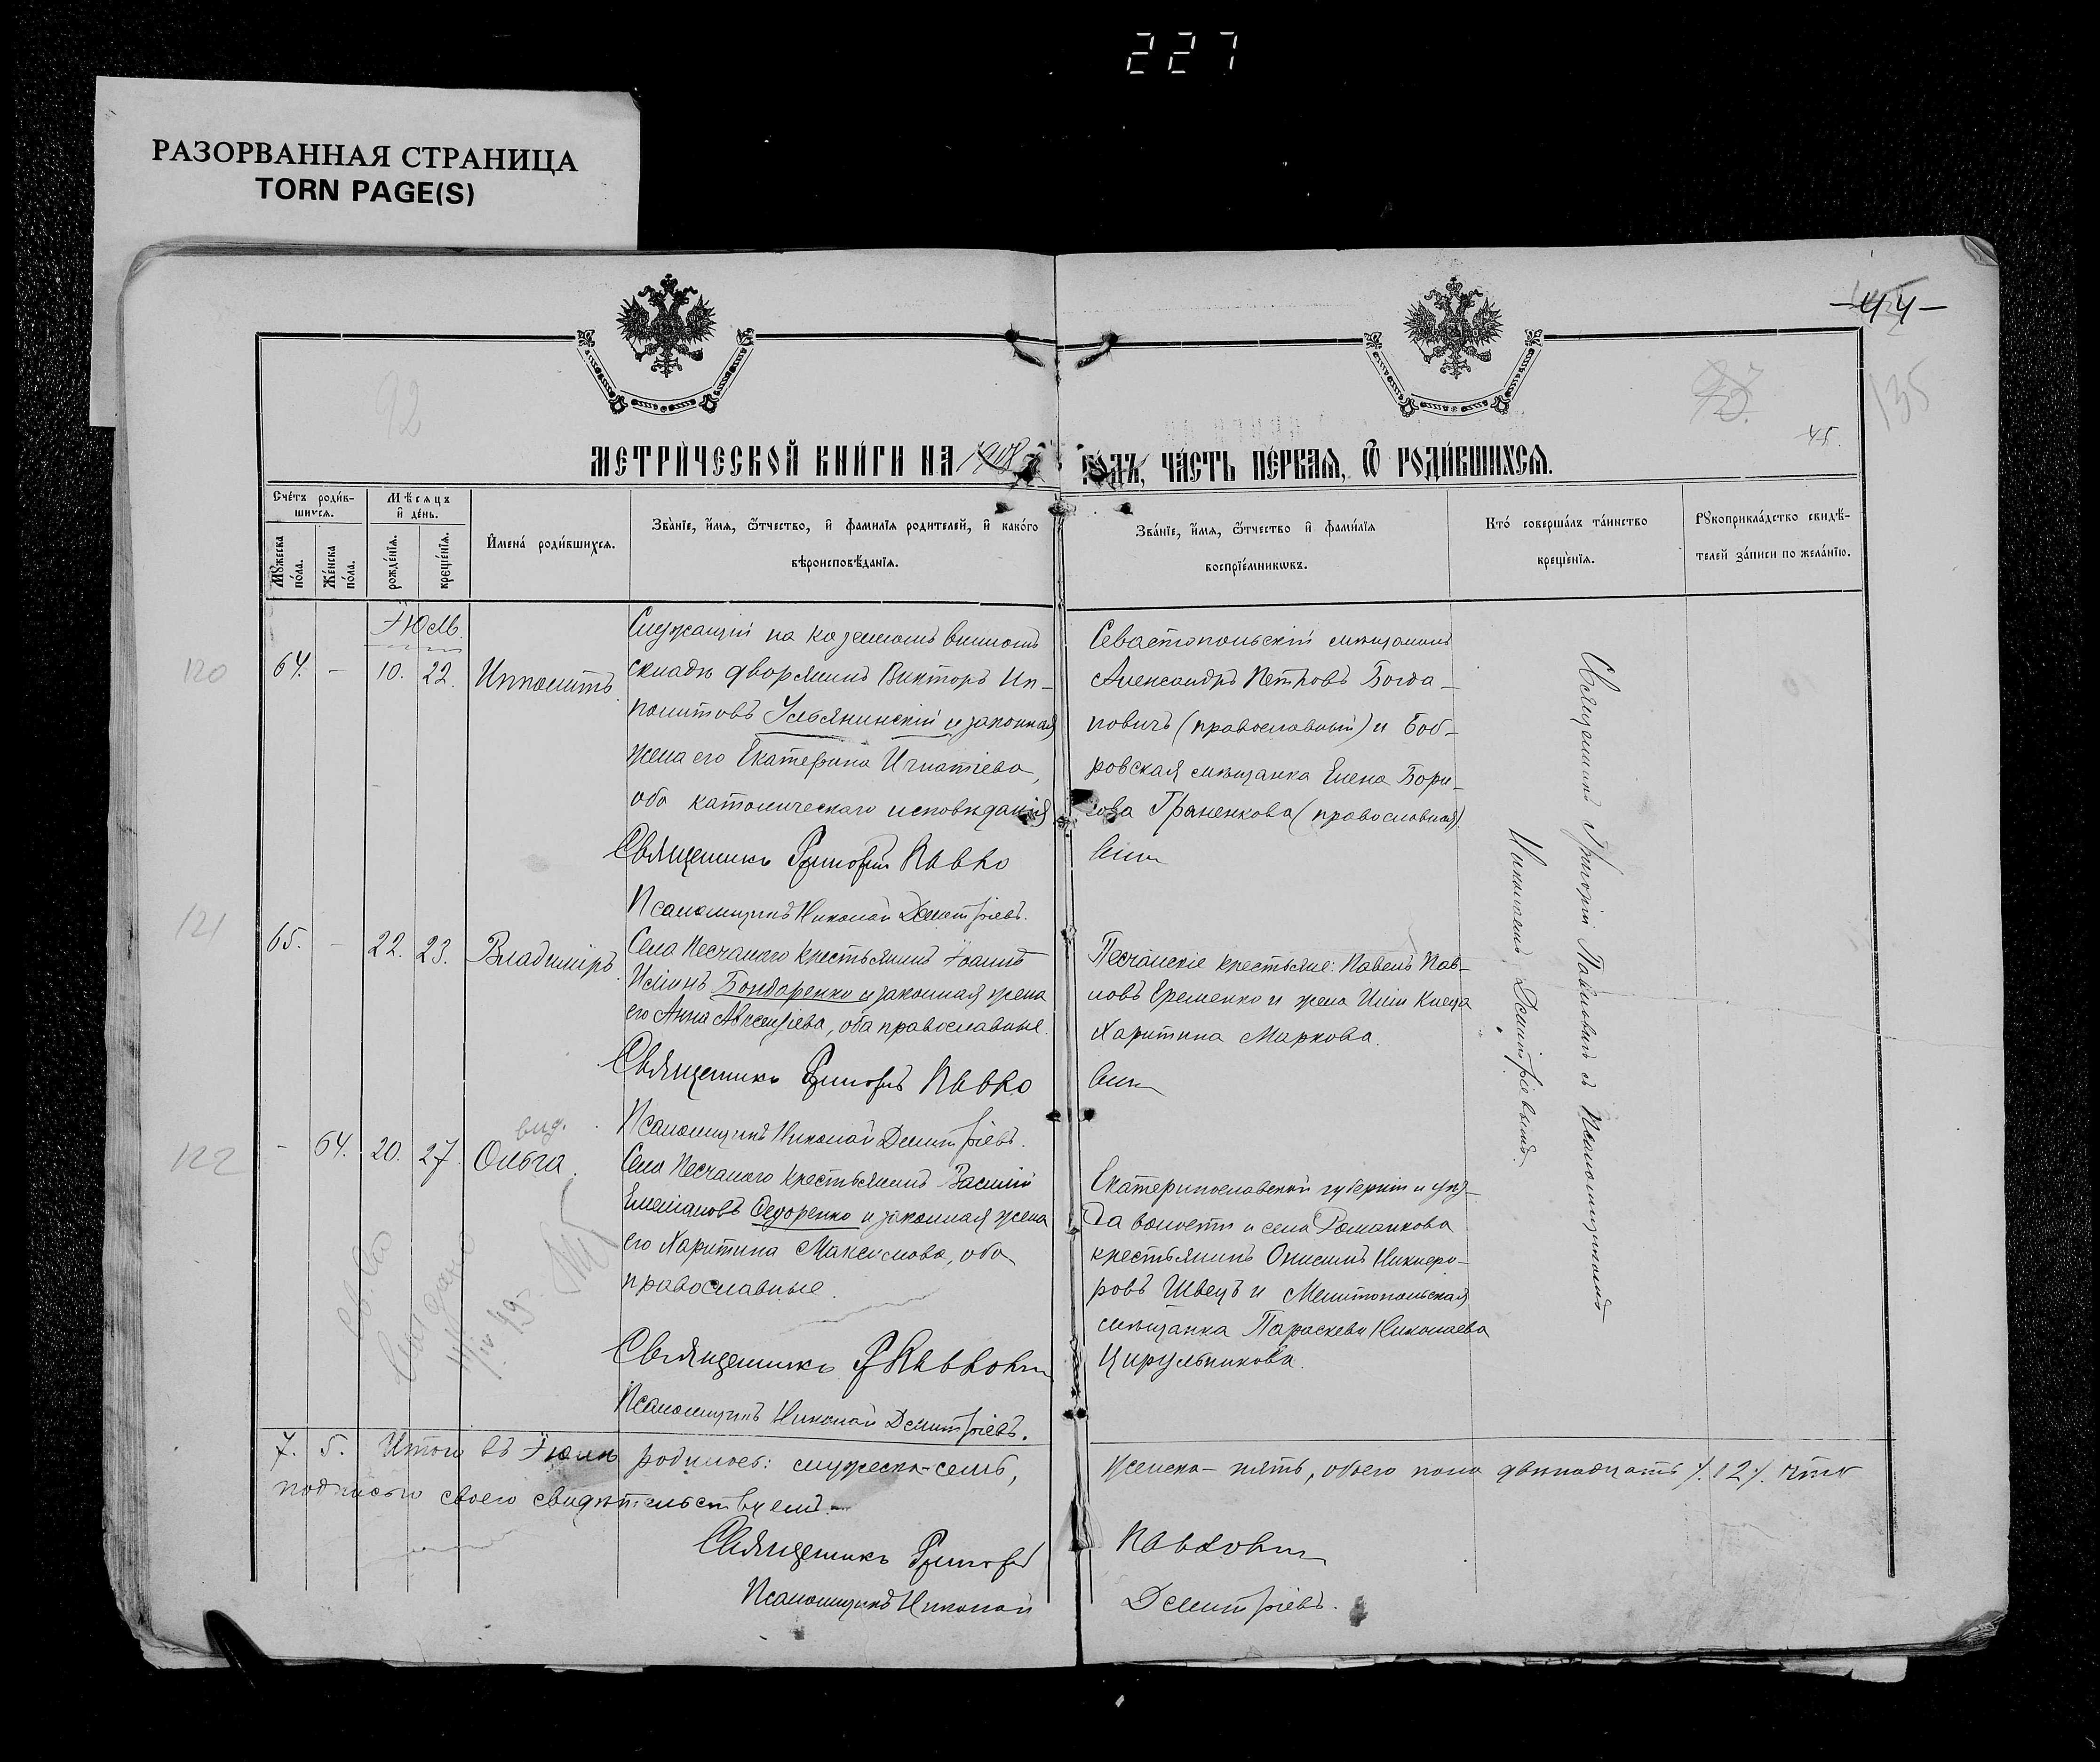 227
РАЗОРВАННАЯ СТРАНИЦА
TORN PAGE(S)
-44-
92
135
45.
МЕТРИ́ЧЕСКОЙ КНИ́ГИ НА 1908 ГОДЪ, ЧА́СТЬ ПЕ́РВАЯ, Ѿ РОДИ́ВШИХСЯ.
Сче́тъ роди́в-
шихся.
Мѣсяцъ
и де́нь.
Мꙋ́жеска
по́ла.
Же́нска
по́ла.
рожде́нїя.
креще́нїя.
Имена̀ роди́вшихся.
Зва́нїе, и́мя, ѿтчество, и фамилїя родителей, и како́го
вѣроисповѣ́данїя.
Зва́нїе, и́мя, ѿтчество и фами́лїя
воспрїе́мникѡвъ.
Кто̀ соверша́лъ та́инство
креще́нїя.
Рꙋкоприкла́дство свидѣ́-
телей за́писи по жела́нїю.
Іюль.
120
64. - 10. 22. Ипполитъ
Служащій на казенномъ винномъ
складѣ дворянинъ Викторъ Ип-
политовъ Ульянинскій и законная
жена его Екатерина Игнатіева,
оба католическаго исповѣданія
Священникъ Григорій Павко
Псаломщикъ Николай Деметріевъ.
Севастопольскій мѣщанинъ
Александръ Петровъ Богда-
новичъ (православный) и Боб-
ровская мѣщанка Елена Бори-
сова Граненкова (православная).
Священникъ Григорій Павловичъ съ Псаломщикомъ
Николаемъ Деметріевымъ.
121
65. - 22. 23. Владиміръ
Села Песчаного крестьянинъ Іоаннъ
Иліинъ Бондаренко и законная жена
его Анна Авксентіева, оба православные.
Священникъ Григорій Павко
Псаломщикъ Николай Деметріевъ.
Песчанскіе крестьяне: Павелъ Пав-
ловъ Еременко и жена Иліи Кнеца
Харитина Маркова.
122
- 64. 20. 27. Ольга.
вид.
Села Песчаного крестьянинъ Василій
Емеліановъ Сидоренко и законная жена
его Харитина Максимова, оба
православные.
Священникъ Г Павлович
Псаломщикъ Николай Деметріевъ.
Екатеринославской губерніи и уѣз-
да волости и села Романкова
крестьянинъ Онисимъ Никифо-
ровъ Швецъ и Мелитопольская
мѣщанка Параскева Николаева
Цирульникова.
7. 5. Итого въ Іюлѣ родилось: мужеска-семь, женска-пять, обоего пола двѣнадцать /.12/. что
подписью своего свидѣтельствуемъ.
Священникъ Григорій Павлович
Псаломщикъ Николай Деметріевъ.